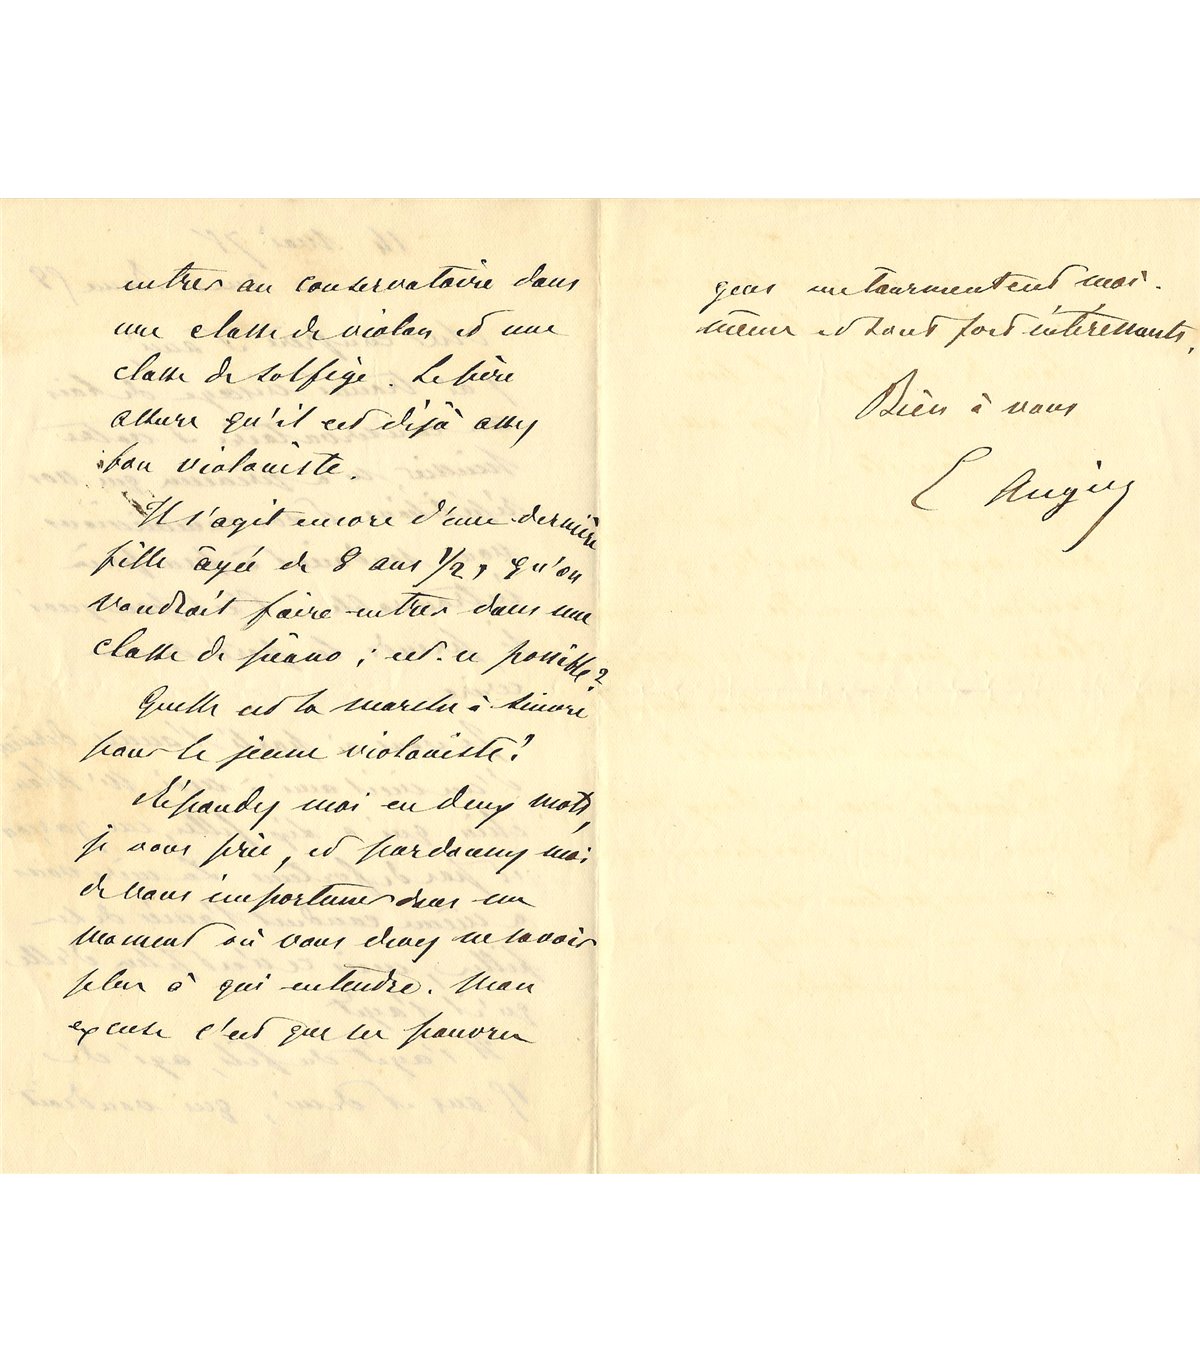 entrer au conservatoire dans
une classe de violon et une
classe de solfège. Le père
assure qu'il est déjà assez
bon violoniste.
Il s'agit encore d'une dernière
fille âgée de 8 ans 1/2, qu'on
voudrait faire entrer dans une
classe de piano ; est-ce possible ?
Quelle est la marche à suivre
pour le jeune violoniste ?
Répondez moi en deux mots,
je vous prie, et pardonnez moi
de vous importuner dans un
moment où vous devez ne savoir
plus à qui entendre. Mon
excuse c'est que ces pauvres
gens me tourmentent moi-
même et sont fort intéressants.
Bien à vous
E Augier